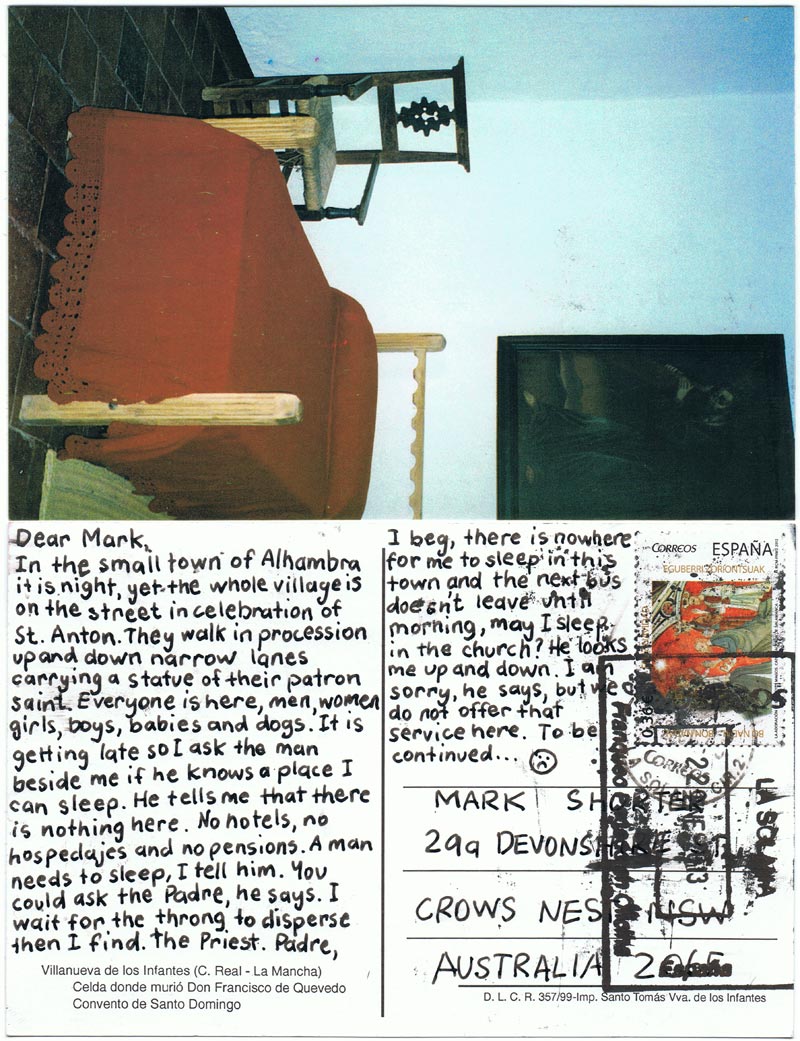 Dear Mark,
In the small town of Alhambra
it is night, yet the whole village is
on the street in celebration of
St. Anton. They walk in procession
up and down narrow lanes
carrying a statue of their patron
saint. Everyone is here, men, women
girls, boys, babies and dogs. It is
getting late so I ask the man
beside me if he knows a place I
can sleep. He tells me that there
is nothing here. No hotels, no
hospedajes and no pensions. A man
needs to sleep, I tell him. You
could ask the Padre, he says. I
wait for the throng to disperse
then I find. The Priest. Padre,
I beg, there is nowhere
for me to sleep in this
town and the next bus
doesn't leave until
morning, may I sleep
in the church? He looks
me up and down. I am
sorry, he says, but we
do not offer that
service here. To be
continued...
CORREOS ESPAÑA
EGUBERRI ZORIONTSUAK
0,36€
CORREOS
LA SOLANA
Franqueo
España
MARK SHORTER
29a DEVONSHIRE ST.
CROWS NEST NSW
AUSTRALIA 2065
Villanueva de los Infantes (C. Real - La Mancha)
Celda donde murió Don Francisco de Quevedo
Convento de Santo Domingo
D. L. C. R. 357/99-Imp. Santo Tomás Vva. de los Infantes